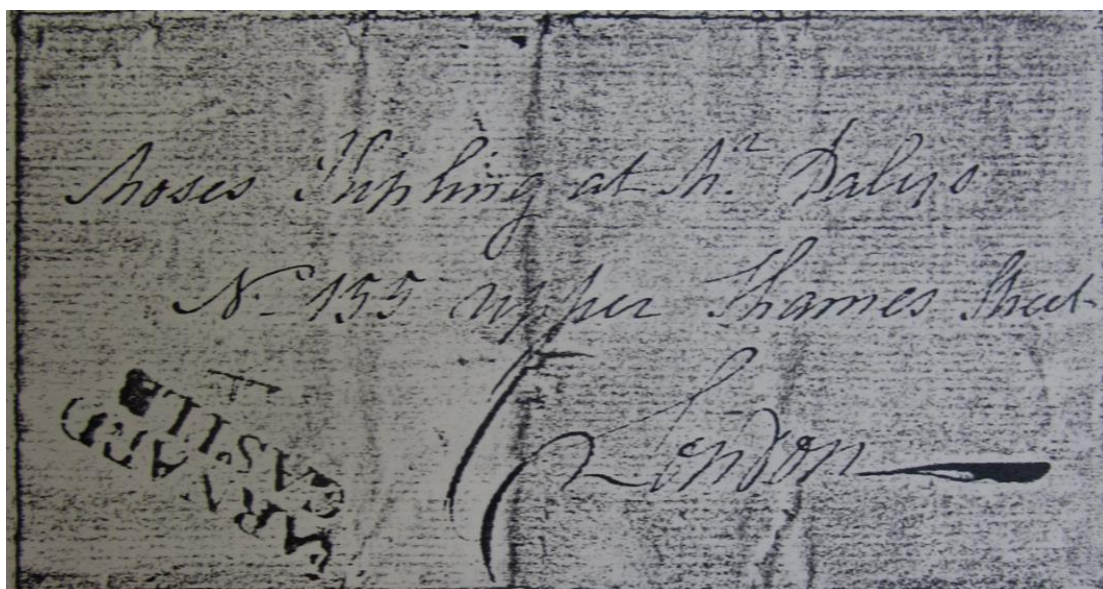 Moses Kipling at Mr. Dalys
No. 155 upper Thames Street
London
BARNARD
CASTLE